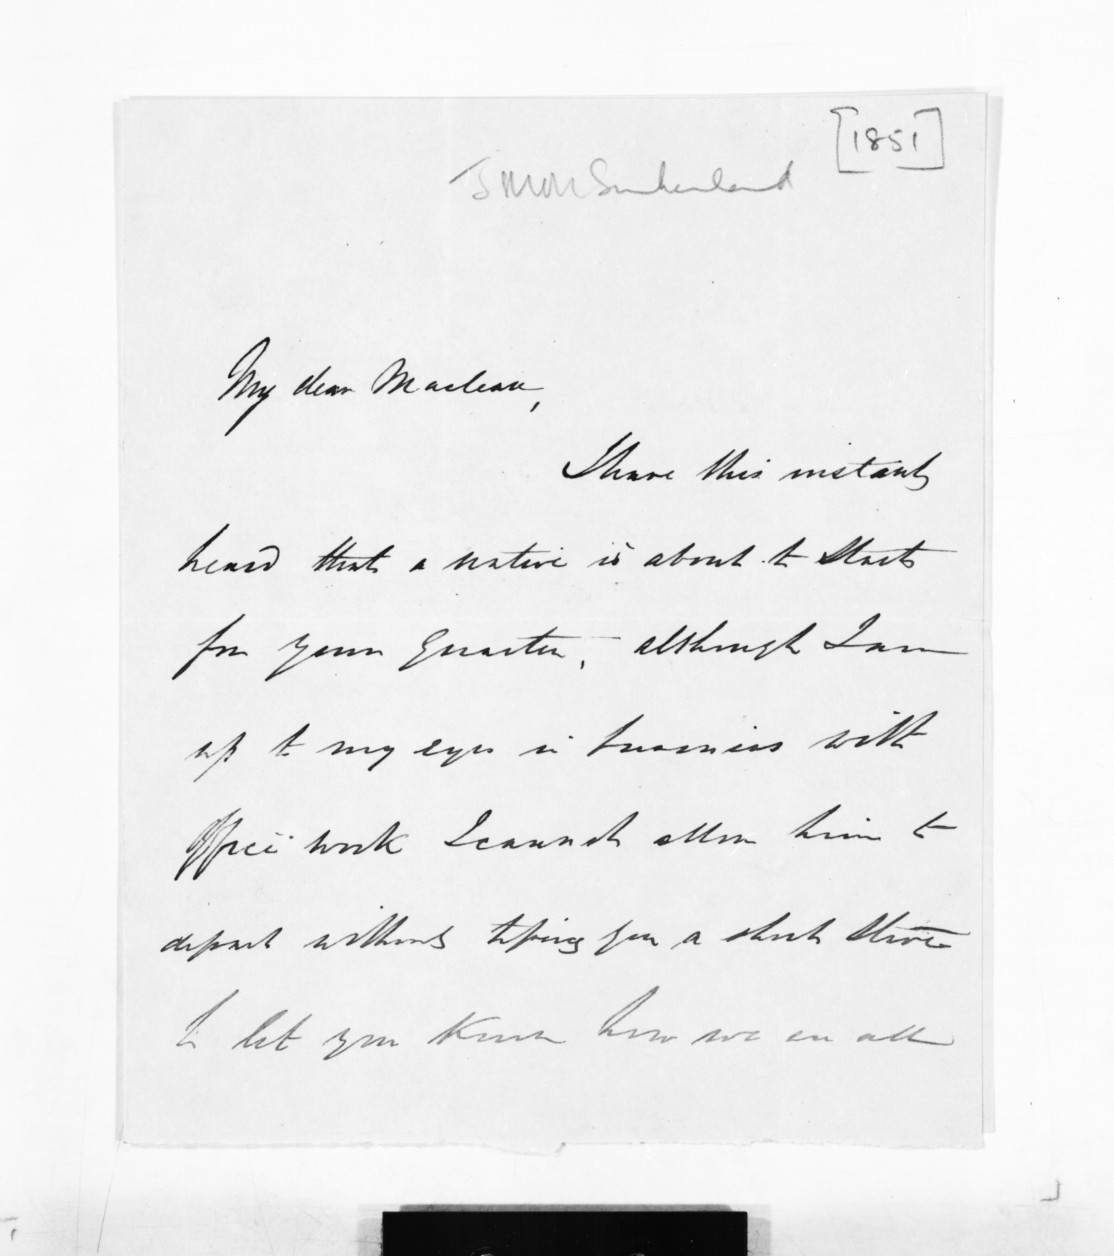 [1851]
Sutherland
My dear Maclean,
I have this instant
heard that a native is about to start
for your Quarter, although I am
up to my eyes in business with
Office work I cannot allow him to
depart without tipping you a short stave
to let you know how we are all